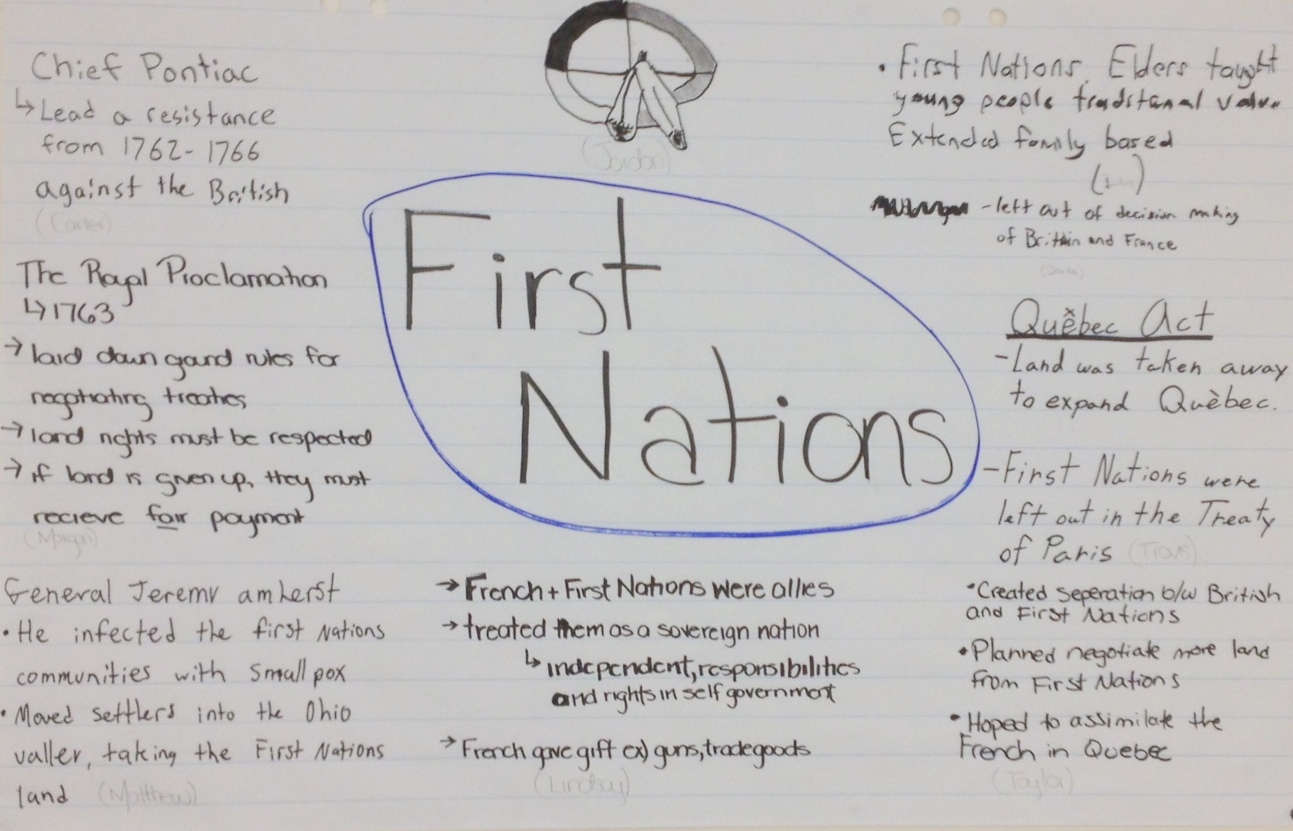 Chief Pontiac
↳ Lead a resistance
from 1762-1766
against the British
(Carter)
The Royal Proclamation
↳ 1763
→ laid down gound rules for
negotiating treaties
→ land rights must be respected
→ if land is given up, they must
recieve fair payment
(Morgan)
General Jeremy amherst
• He infected the first Nations
communities with Small pox
• Moved settlers into the Ohio
valler, taking the First Nations
land (Matthew)
(Jordon)
First
Nations
→ French + First Nations were allies
→ treated them as a sovereign nation
↳ independent, responsibilities
and rights in self government
→ French gave gift ex) guns, trade goods
(Lindsay)
• First Nations Elders taught
young people traditanal value
Extended family based
- left out of decision making
of Brittain and France
Quěbec Act
- Land was taken away
to expand Quèbec.
- First Nations were
left out in the Treaty
of Paris (Travis)
• Created seperation b/w British
and First Nations
• Planned negotiate more land
from First Nations
• Hoped to assimilate the
French in Quebec
(Taylor)